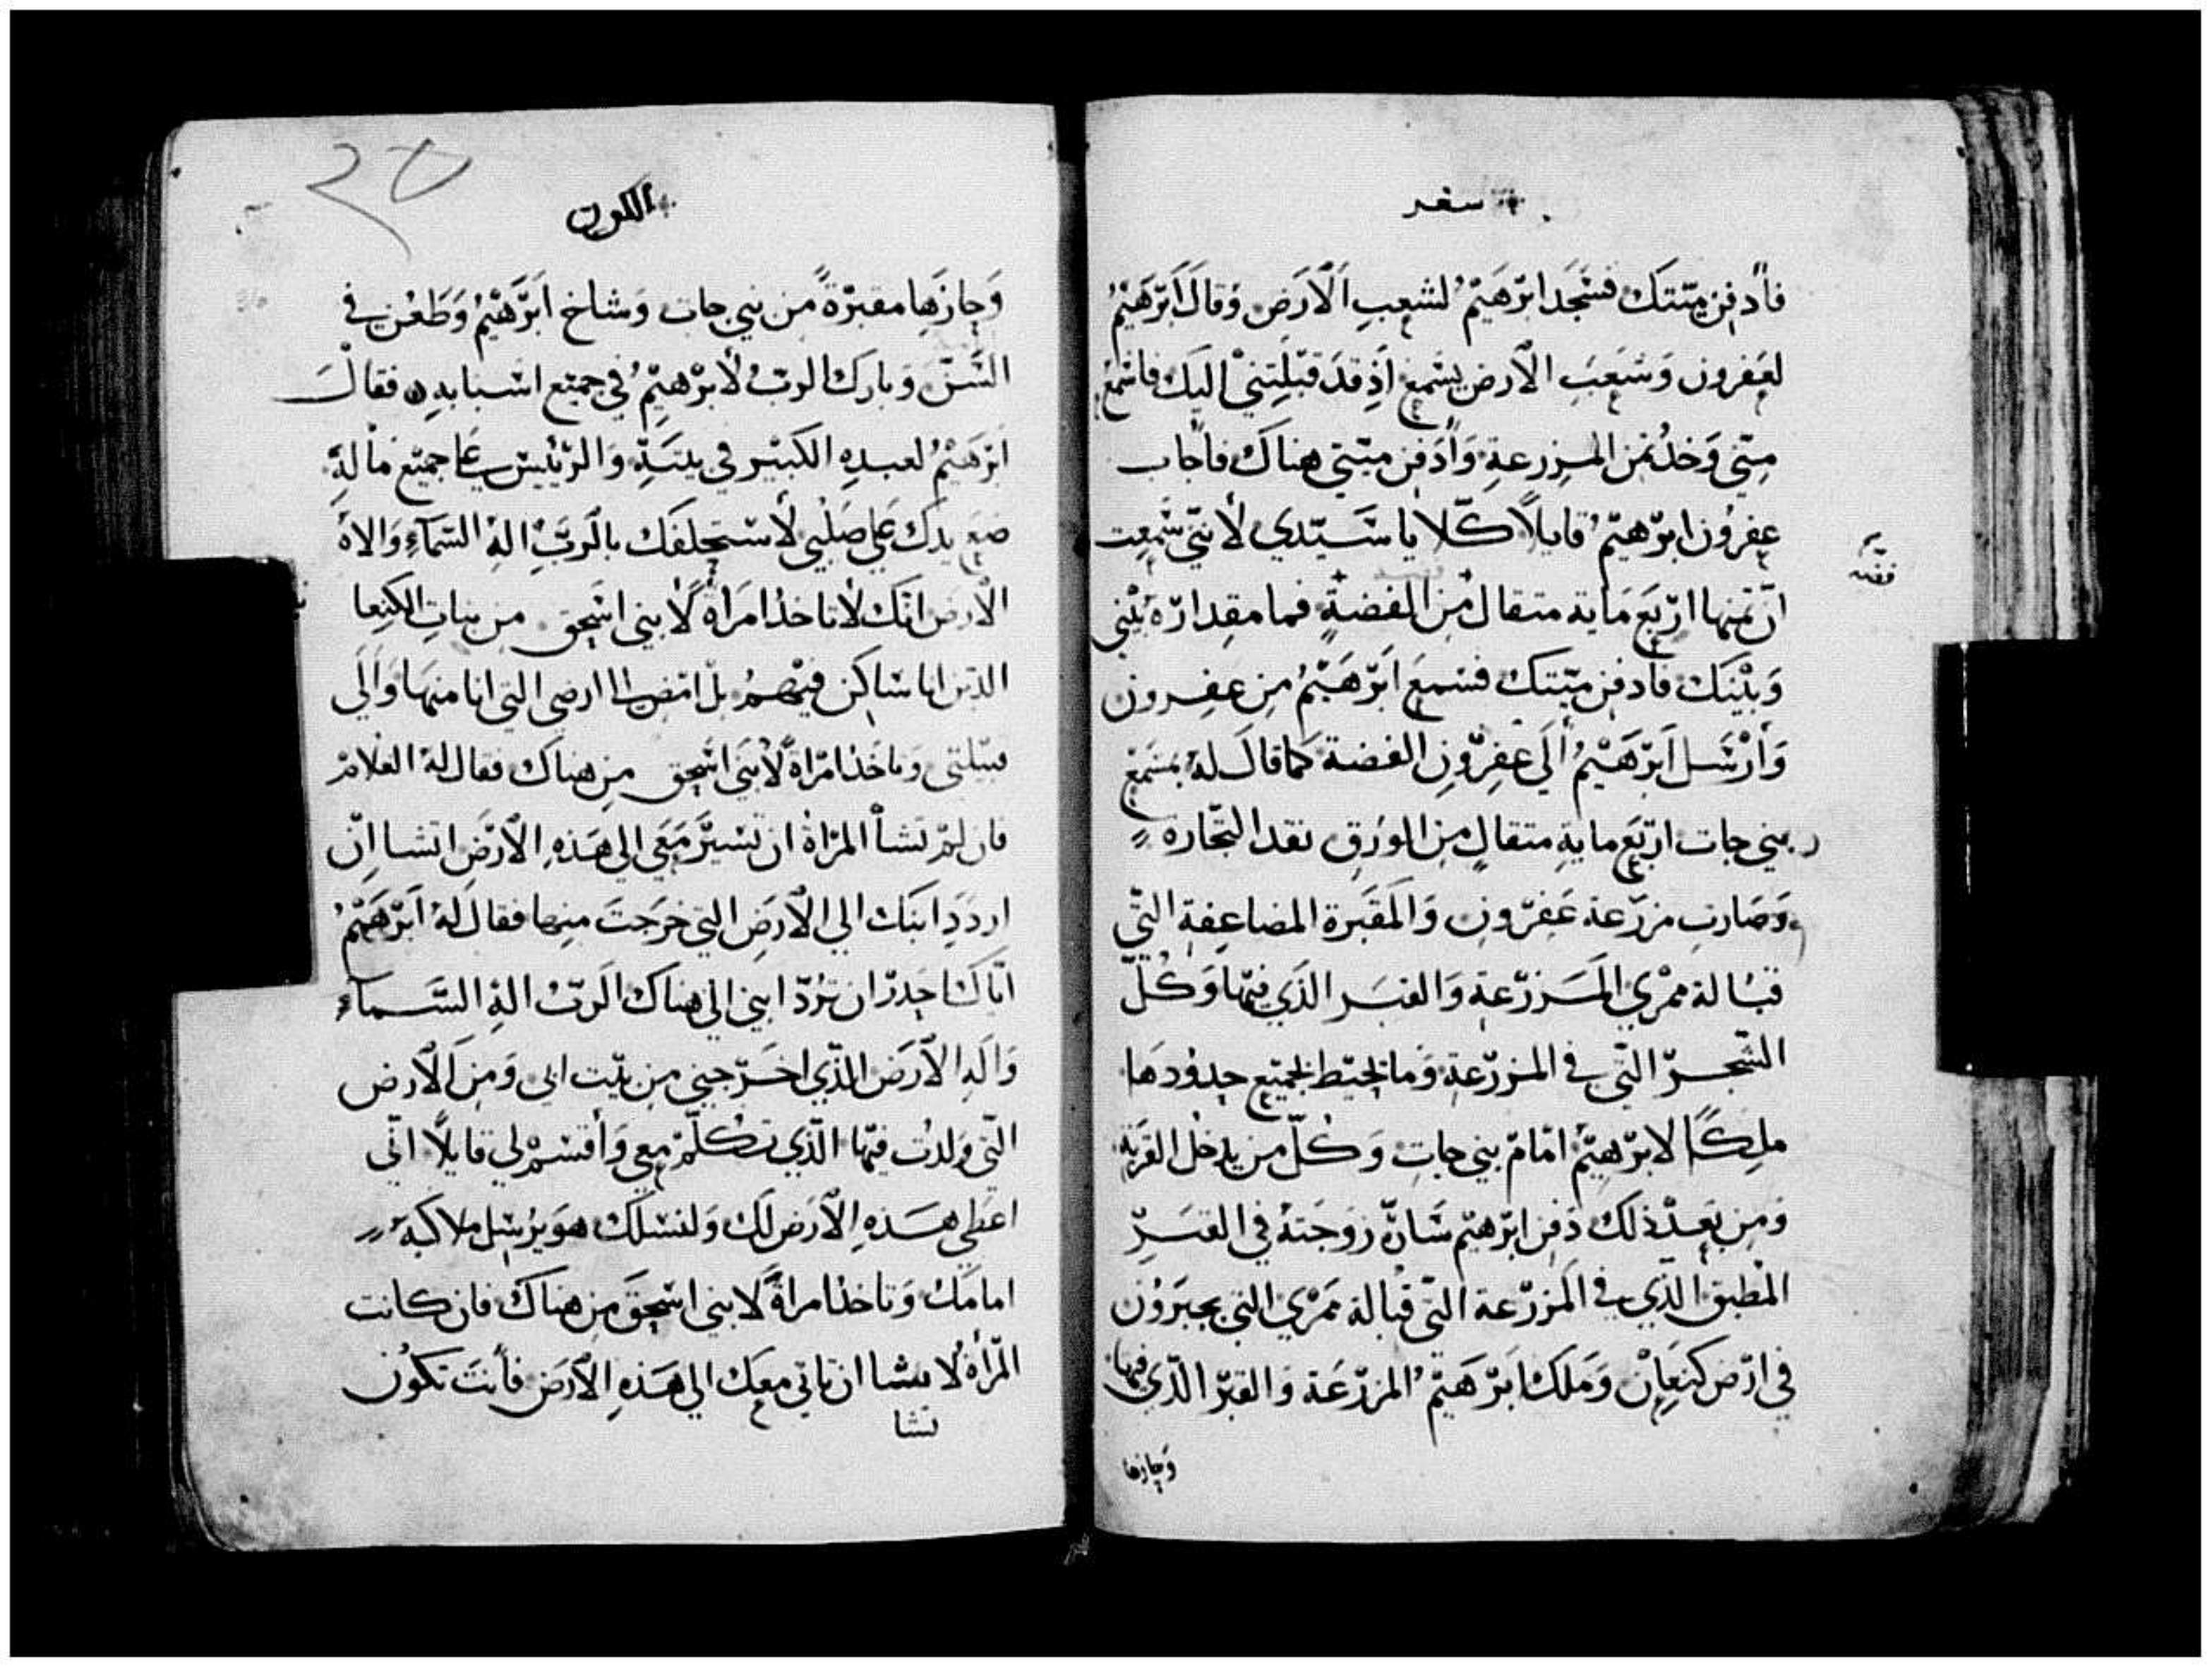 سفر
فأدفن ميتتك فسجد ابرهيم لشعب الارض وقال ابرهيم
لعفرون وشعب الارض يسمع اذ قد قبلتني اليك فاسمع
مني وخذ ثمن المزرعة وأدفن ميتتي هناك فاجاب
عفرون ابرهيم قايلاً كلا يا سيدي لأنني سمعت
ان ثمنها اربع ماية متقال من الفضة فما مقدار ه بيني
فضه
وبينك فادفن ميتتك فسمع ابرهيم من عفرون
وأرسل ابرهيم الي عفرون الفضة كما قال له بمسمع
بني حات اربع ماية متقال من الورق نقد التجاره
وصارت مزرعة عفرون والمقبرة المضاعفة التي
قبالة ممري المزرعة والقبر الذي فيها وكل
الشجر التي في المزرعة وما يحيط بجميع حدودها
ملكاً لابرهيم امام بني حات وكل من يدخل القرية
ومن بعد ذلك دفن ابرهيم سارة زوجته في القبر
المطبق الذي في المزرعة التي قبالة ممري التي بحبرون
في ارض كنعان وملك ابرهيم المزرعة والقبر الذي فيها
وحازها
الكون
وحازها مقبرة من بني حات وشاخ ابرهيم وطعن في
السن وبارك الرب لأبرهيم في جميع اسبابه فقال
ابرهيم لعبده الكبير في بيته والرئيس علي جميع ماله
ضع يدك علي صلبي لأستحلفك بالرب اله السماء والاه
الارض انك لا تاخذ امراة لأبني اسحق من بنات الكنعا
الذين انا ساكن فيهم بل امض الا ارضي التي انا منها والي
قبيلتي وتاخذ امراة لأبني اسحق من هناك فقال له الغلام
فان لم تشأ المراة ان تسير معي الي هذه الارض اتشا ان
اردد ابنك الي الارض التي خرجت منها فقال له ابرهيم
اياك احدر ان ترد ابني الي هناك الرب اله السماء
واله الارض الذي اخرجني من بيت ابي ومن الارض
التي ولدت فيها الذي تكلم معي وأقسم لي قايلاً اني
اعطي هذه الارض لك ولنسلك هو يرسل ملاكه
امامك وتاخذ امراة لابني اسحق من هناك فان كانت
المرأة لا تشا ان تاتي معك الي هذه الارض فأنت تكون
تشا